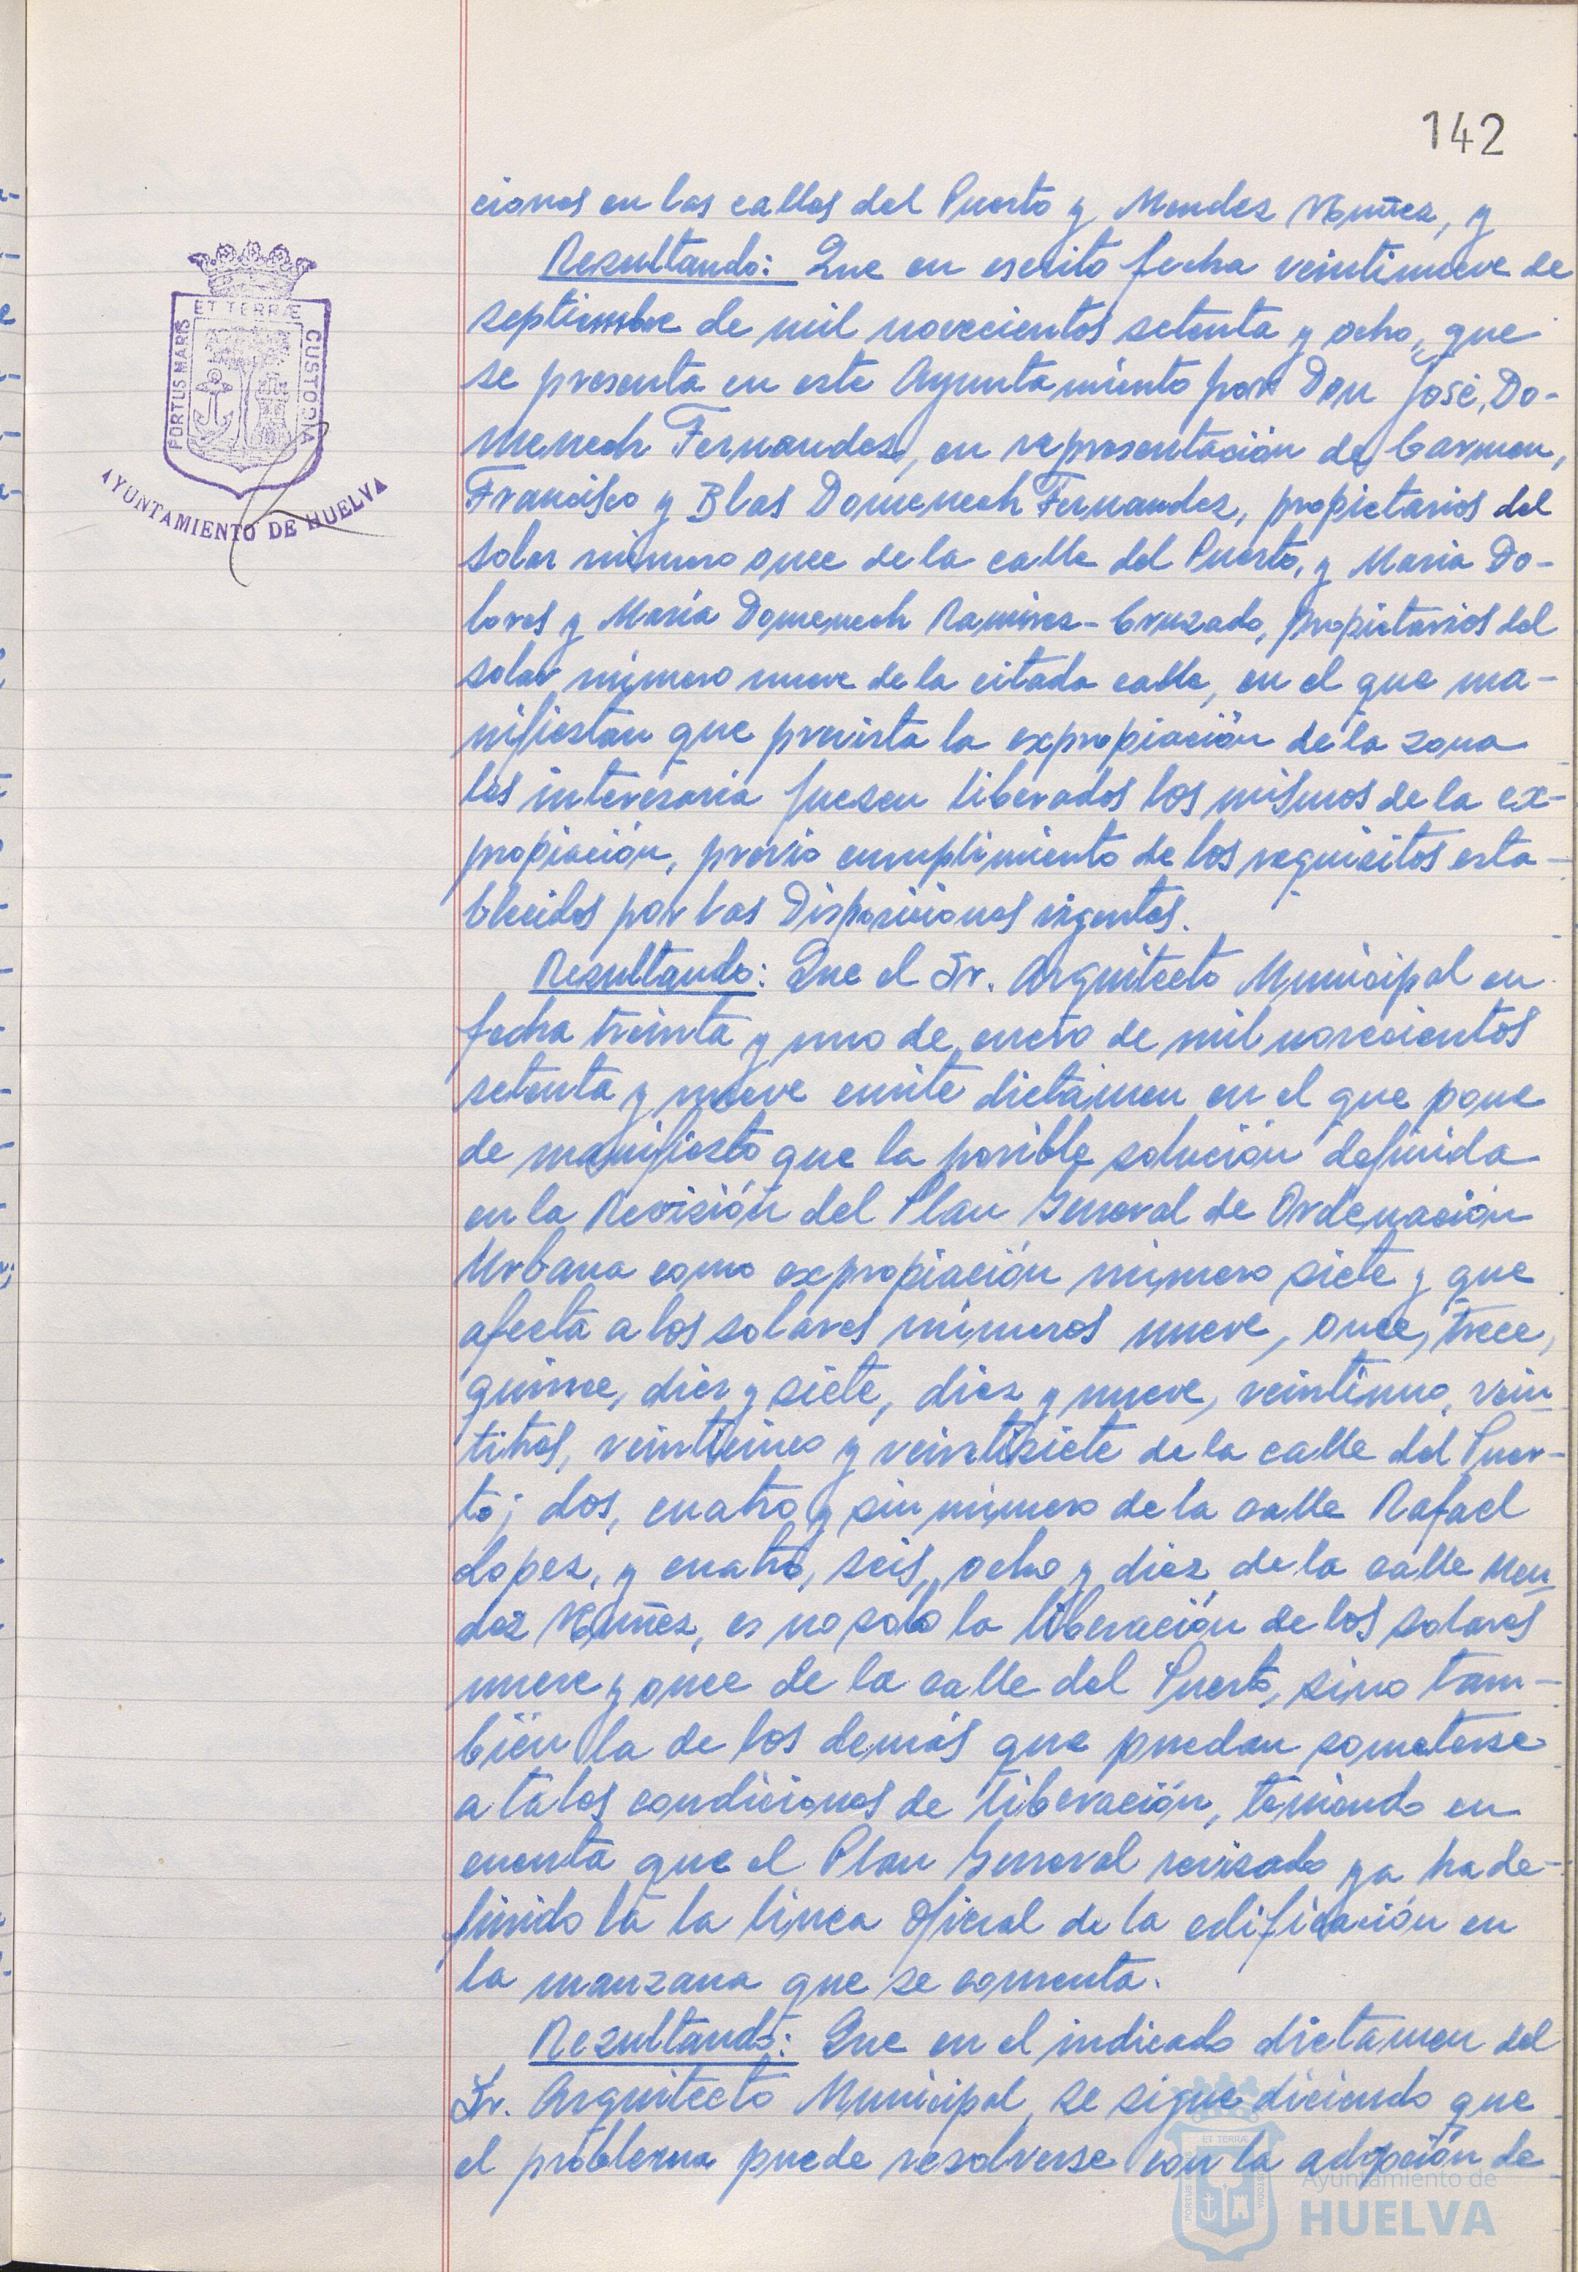 142
ciones en las calles del Puerto y Mendez Nuñez, y
Resultando: Que en escrito fecha veintinueve de
septiembre de mil novecientos setenta y ocho, que
se presenta en este Ayuntamiento por Don José, Do-
menech Fernandez, en representación de Carmen,
Francisco y Blas Domenech Fernandez, propietarios del
solar número once de la calle del Puerto, y Maria Do-
lores y María Domenech Ramirez-Cruzado, propietarios del
solar número nueve de la citada calle, en el que ma-
nifiestan que prevista la expropiación de la zona
les interesaria fuesen liberados los mismos de la ex-
propiación, previo cumplimiento de los requisitos esta-
blecidos por las Disposiciones vigentes.
Resultando: Que el Sr. Arquitecto Municipal en
fecha treinta y uno de enero de mil novecientos
setenta y nueve emite dictámen en el que pone
de manifiesto que la posible solución definida
en la Revisión del Plan General de Ordenación
Urbana como expropiación número siete y que
afecta a los solares números nueve, once, trece,
quince, diez y siete, diez y nueve, veintiuno, vein
titres, veinticinco y veintisiete de la calle del Puer-
to; dos, cuatro y sin número de la calle Rafael
Lopez, y cuatro, seis, ocho y diez de la calle Men
dez Nuñez, es no sólo la liberación de los solares
nueve y once de la calle del Puerto, sino tam-
bién la de los demás que puedan someterse
a tales condiciones de liberación, teniendo en
cuenta que el Plan General revisado ya ha de-
finido la la linea oficial de la edificación en
la manzana que se comenta.
Resultando: Que en el indicado dictamen del
Sr. Arquitecto Municipal, se sigue diciendo que
el problema puede resolverse con la adopción de
PORTUS MARIS
ET TERRÆ
CUSTODIA
AYUNTAMIENTO DE HUELVA
Ayuntamiento de
HUELVA